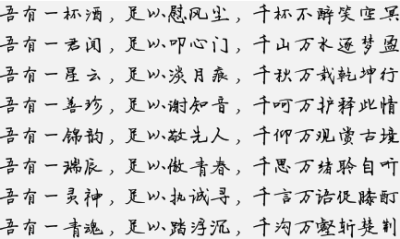 吾有一杯酒，足以慰风尘，千杯不醉笑空冥
吾有一君闻，足以叩心门，千山万水逐梦盈
吾有一星云，足以淡月痕，千秋万载乾坤行
吾有一善珍，足以谢知音，千呵万护释此情
吾有一锦韵，足以敬先人，千仰万观赏古境
吾有一瑞辰，足以傲青春，千思万绪聆自听
吾有一灵神，足以执诚寻，千言万语促膝酊
吾有一青魂，足以踏浮沉，千沟万壑斩楚荆